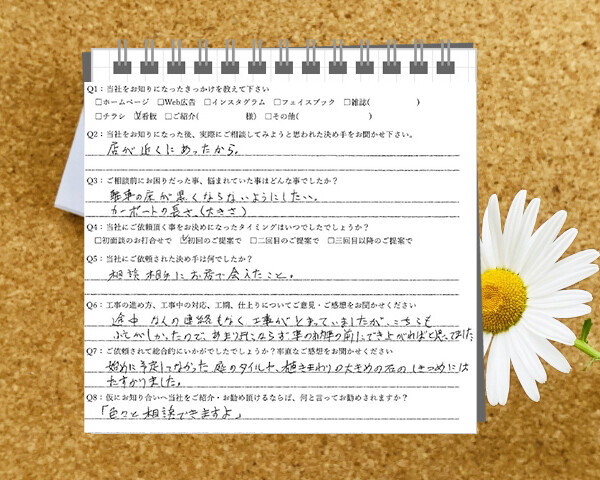 Q1：当社をお知りになったきっかけを教えて下さい
□ホームページ □Web広告 □インスタグラム □フェイスブック □雑誌( )
□チラシ ☑看板 □ご紹介( 様) □その他( )
Q2：当社をお知りになった後、実際にご相談してみようと思われた決め手をお聞かせ下さい。
店が近くにあったから。
Q3：ご相談前にお困りだった事、悩まれていた事はどんな事でしたか？
駐車の床が悪くならないようにしたい。
カーポートの長さ、(大きさ)
Q4：当社にご依頼頂く事をお決めになったタイミングはいつでしたでしょうか？
□初面談のお打合せで ☑初回のご提案で □二回目のご提案で □三回目以降のご提案で
Q5：当社にご依頼された決め手は何でしたか？
相談相手にお店で会えたこと。
Q6：工事の進め方、工事中の対応、工期、仕上りについてご意見・ご感想をお聞かせください
途中 なんの連絡もなく 工事がとまっていましたが、こちらも
いそがしかったので、あまり気にならず 車の納車の前にできあがればと思ってました
Q7：ご依頼されて総合的にいかがでしたでしょうか？率直なご感想をお聞かせください
始めに予定してなかった 庭のタイルや、植きまわりの大きめの石の しきつめには
たすかりました。
Q8：仮にお知り合いへ当社をご紹介・お勧め頂けるならば、何と言ってお勧めされますか？
「色々と相談できますよ」